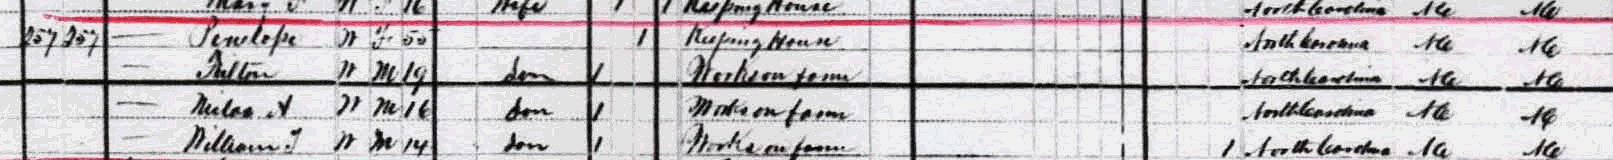 Mary F W F 16 Wife 1 1 Keeping House North Carolina NC NC
257 257 — Penelope W F 55 1 Keeping House North Carolina NC NC
— Fulton W M 19 Son 1 Works on farm North Carolina NC NC
— Milas A W M 16 Son 1 Works on farm North Carolina NC NC
— William T W M 14 Son 1 Works on farm 1 North Carolina NC NC